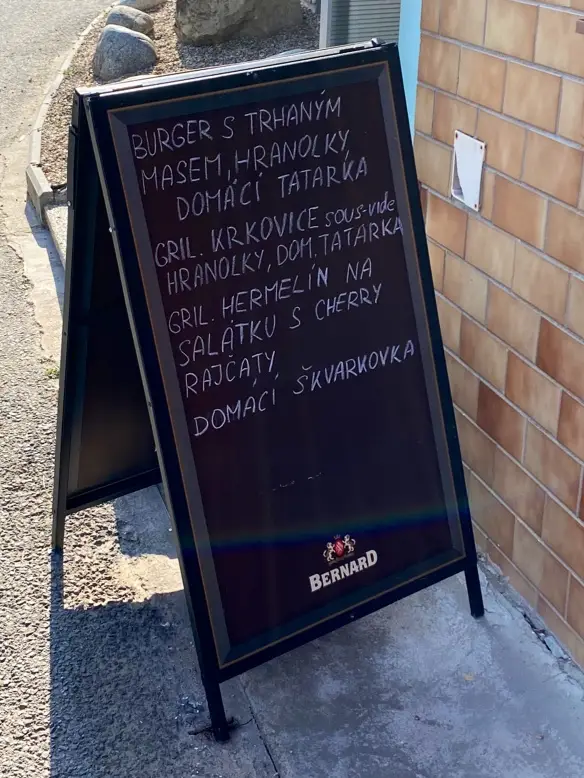 BURGER S TRHANÝM
MASEM, HRANOLKY,
DOMÁCÍ TATARKA
GRIL. KRKOVICE SOUS-vide
HRANOLKY, DOM. TATARKA
GRIL. HERMELÍN NA
SALÁTKU S CHERRY
RAJČATY
DOMÁCÍ ŠKVARKOVKA
BERNARD